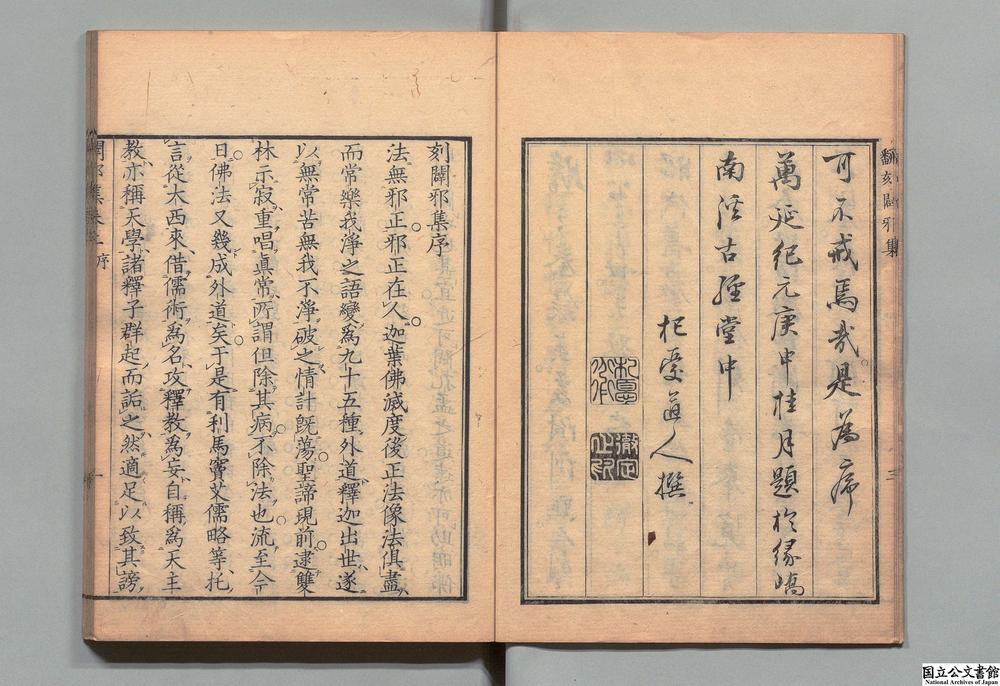 翻刻闢邪集 三
可不戒焉哉是為序
萬延紀元庚申桂月題於緣嶠
南溪古經堂中
杞憂道人撰
徹定之印
刻闢邪集序
法無邪正邪正在人迦葉佛滅度後正法像法俱盡
而常樂我淨之語變爲九十五種外道釋迦出世遂
以無常苦無我不淨破之情計旣蕩聖諦現前逮雙
林示寂重唱眞常所謂但除其病不除法也流至今
日佛法又幾成外道矣于是有利馬竇艾儒略等托
言從大西來借儒術爲名攻釋教爲妄自稱爲天主
教亦稱天學諸釋子群起而詬之然適足以致其謗
闢邪集 序 一
国立公文書館
National Archives of Japan